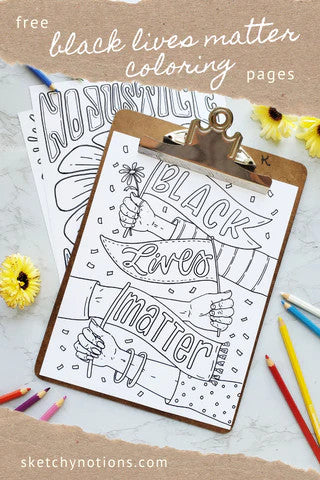 free
black lives matter
coloring pages
NO JUSTICE
K
BLACK
Lives
matter
sketchynotions.com